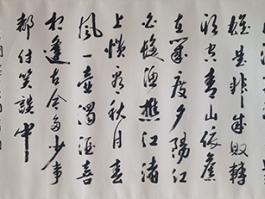 雄是非成敗轉
頭空青山依舊
在幾度夕陽紅
白髮漁樵江渚
上慣看秋月春
風一壺濁酒喜
相逢古今多少事
都付笑談中